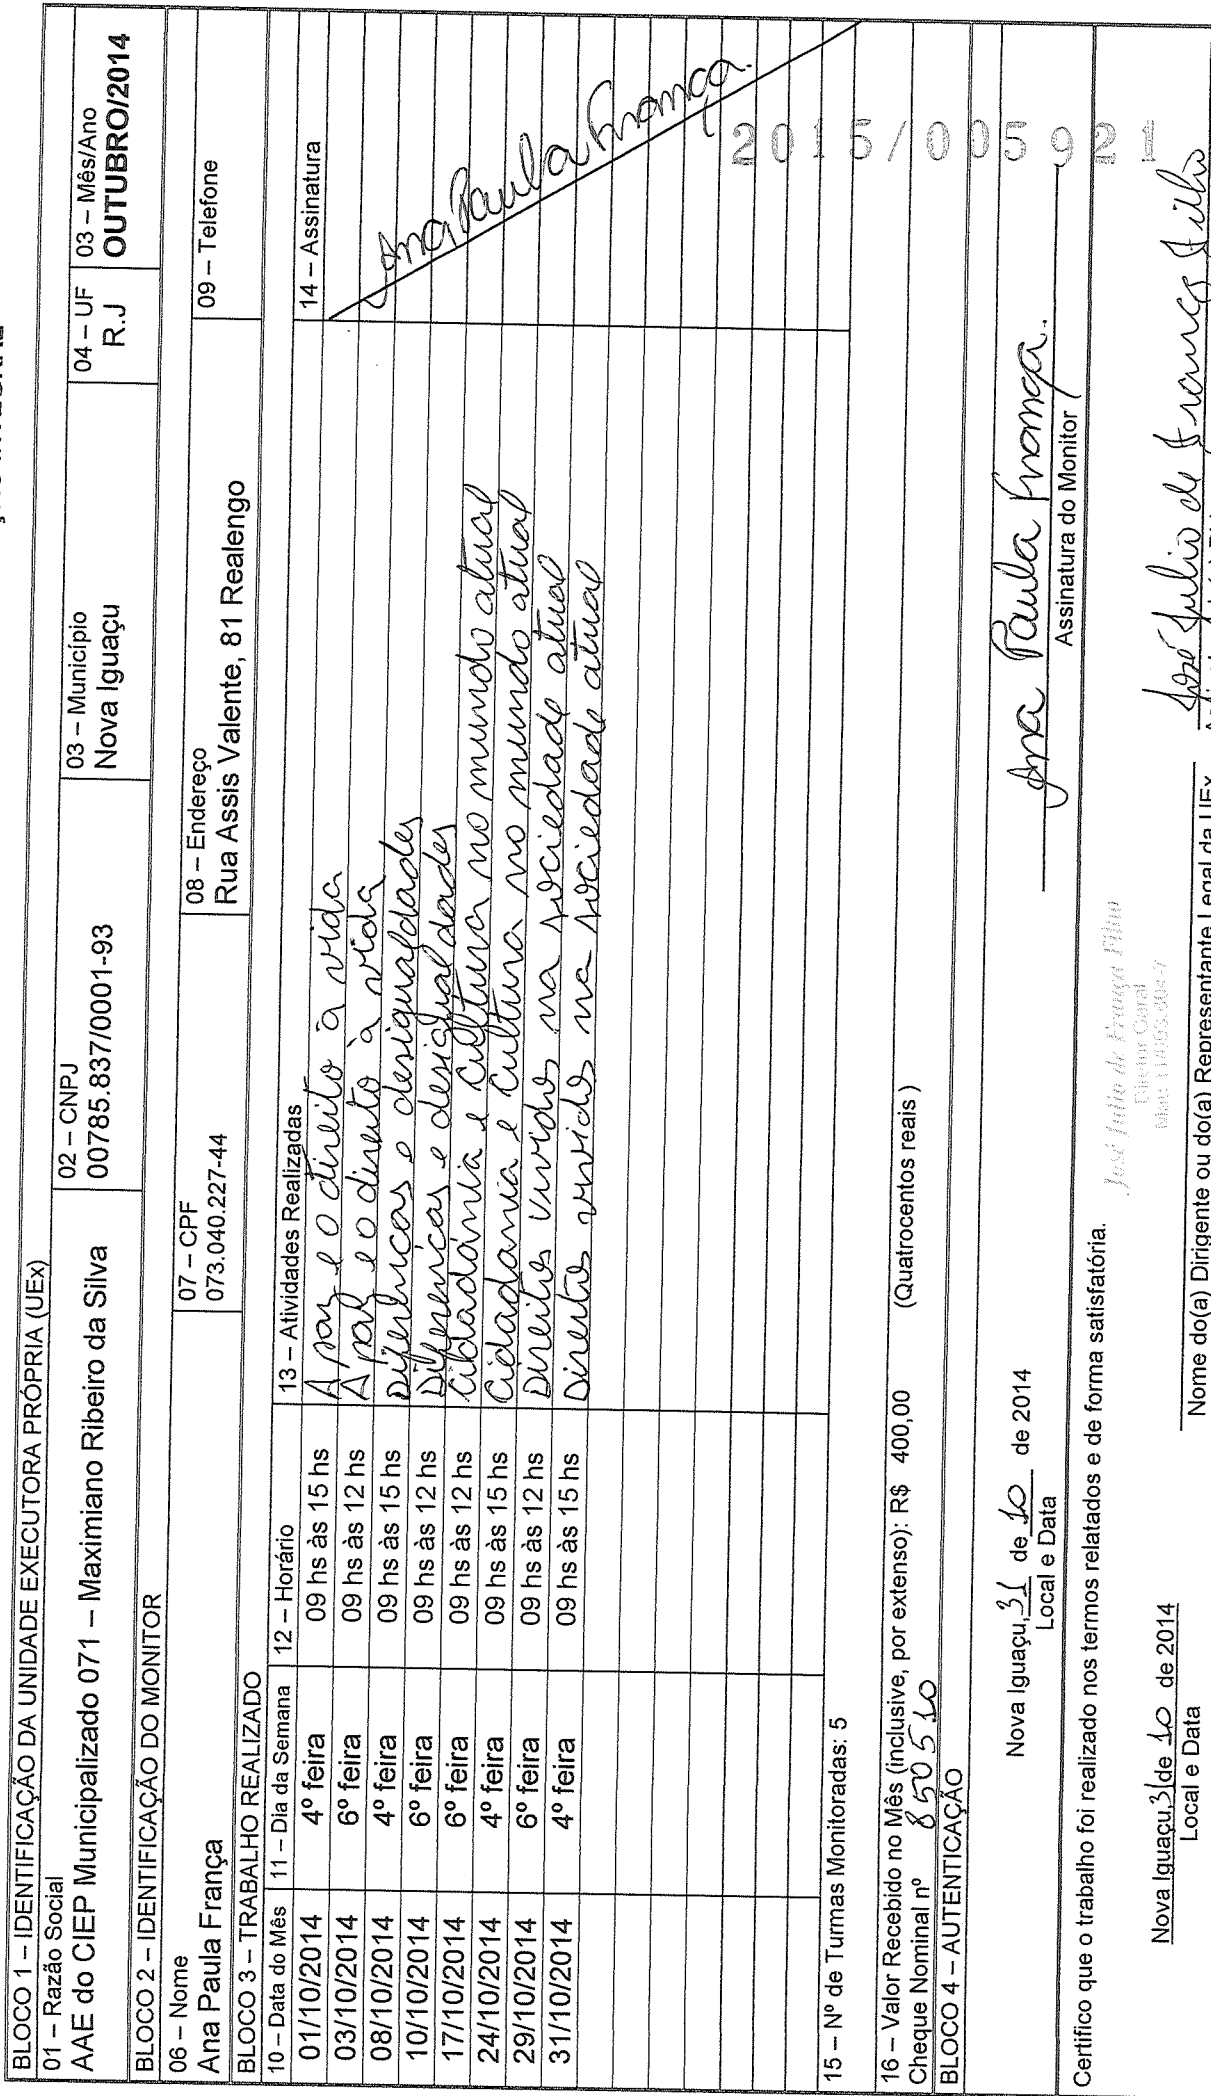 BLOCO 1 – IDENTIFICAÇÃO DA UNIDADE EXECUTORA PRÓPRIA (UEx)
01 – Razão Social
AAE do CIEP Municipalizado 071 – Maximiano Ribeiro da Silva
02 – CNPJ
00785.837/0001-93
03 – Município
Nova Iguaçu
04 – UF
R.J
03 – Mês/Ano
OUTUBRO/2014
BLOCO 2 – IDENTIFICAÇÃO DO MONITOR
06 – Nome
Ana Paula França
07 – CPF
073.040.227-44
08 – Endereço
Rua Assis Valente, 81 Realengo
09 – Telefone
BLOCO 3 – TRABALHO REALIZADO
10 – Data do Mês 11 – Dia da Semana 12 – Horário 13 – Atividades Realizadas 14 – Assinatura
01/10/2014 4º feira 09 hs às 15 hs A paz e o direito à vida
03/10/2014 6º feira 09 hs às 12 hs A paz e o direito à vida
08/10/2014 4º feira 09 hs às 15 hs Diferenças e desigualdades
10/10/2014 6º feira 09 hs às 12 hs Diferenças e desigualdades
17/10/2014 6º feira 09 hs às 12 hs Cidadania e cultura no mundo atual
24/10/2014 4º feira 09 hs às 15 hs Cidadania e cultura no mundo atual
29/10/2014 6º feira 09 hs às 12 hs Direitos vividos na sociedade atual
31/10/2014 4º feira 09 hs às 15 hs Direitos vividos na sociedade atual
Ana Paula França.
15 – Nº de Turmas Monitoradas: 5
2015/005921
16 – Valor Recebido no Mês (inclusive, por extenso): R$ 400,00 (Quatrocentos reais )
Cheque Nominal nº 850510
BLOCO 4 – AUTENTICAÇÃO
Nova Iguaçu, 31 de 10 de 2014
Local e Data
Ana Paula França.
Assinatura do Monitor
Certifico que o trabalho foi realizado nos termos relatados e de forma satisfatória.
José Julio de França Filho
Diretor Geral
Nova Iguaçu, 31 de 10 de 2014
Local e Data
José Julio de França Filho
Nome do(a) Dirigente ou do(a) Representante Legal da UEx